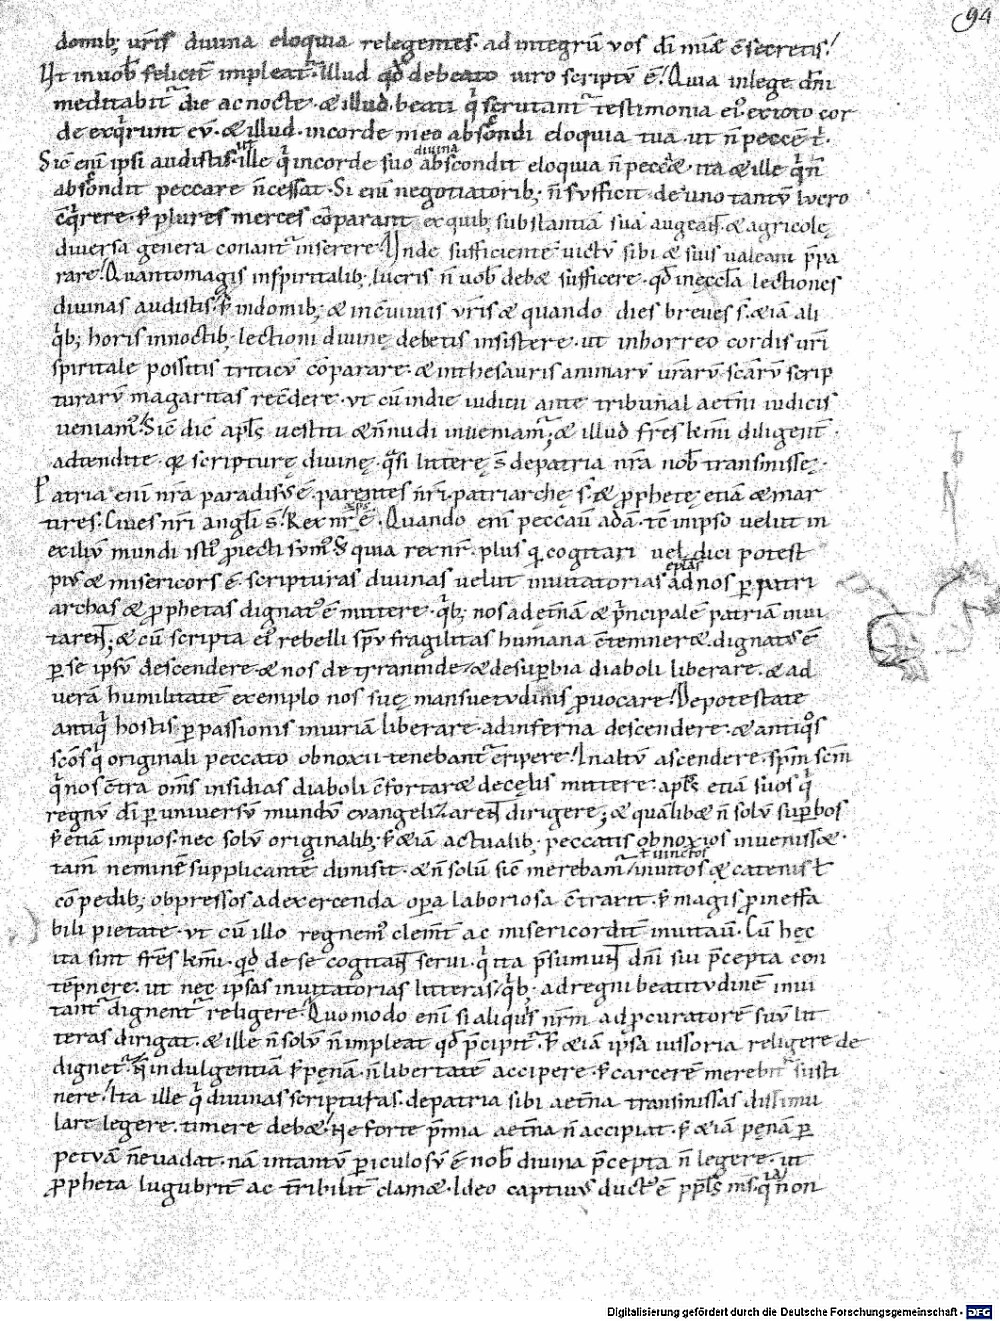 94
domib; ur̄is diuina eloquia relegentes. ad integrū uos dī mia᷑ c̄secretis.
Ut in uob̄ felicit̄ impleat᷑. Illud qd̄ de beato uiro scriptū ē. Quia in lege dn̄i
meditabit᷑ die ac nocte. & illud. beati qͥ scrutant᷑ testimonia eiꝰ. ex toto cor
de exqͥrunt eū. & illud. in corde meo abscondi eloquia tua. ut n̄ peccē t᷑.
Sic̄ enī ipsi audistis. ut ille qͥ in corde suo diuina abscondit eloquia n̄ peccat. ita & ille qͥ n̄
abscondit peccare n̄ cessat. Si enī negotiatorib; n̄ sufficit de uno tantū lucro
c̄qͥrere. s; plures merces cōparant ex quib; substantiā suā augeant. & agricolę
diuersa genera conant᷑ inserere. Unde sufficiente uictū sibi & suis ualeant p̄pa
rare. Quanto magis in sp̄iritalib; lucris n̄ uob̄ deb& sufficere. qd̄ in ęccl̄a lectiones
diuinas audistis. s; in domib; & in cuiuiis ur̄is & quando dies breues s̄. &iā ali
qͥb; horis in noctib; lectioni diuinę debetis insistere. ut in horreo cordis ur̄i
spiritale possitis triticū cōparare. & in thesauris animarū ur̄arū sc̄arū scrip
turarū magaritas rec̄dere. ut cū in die iudicii ante tribunal aet̄ni iudicis
ueniamꝰ. Sic̄ dic̄ apl̄s uestiti & n̄ nudi inueniam᷑; & illud fr̄es km̄i diligent̄
adtendite. qꝫ scripturę diuinę. qͣsi litterę s̄ de patria nr̄a nob̄ transmissę.
Patria enī nr̄a paradisus ē. parentes nr̄i. patriarchę s̄. & p̄phetę etiā & mar
tires. Ciues nr̄i angl̄i s̄. Rex nr̄ xp̄s ē. Quando enī peccauī adā. tc̄ in ipso uelut in
exiliū mundi istiꝰ p̄iecti sumꝰ. S; quia rex nr̄. plus qͣ cogitari uel dici potest
pius & misericors ē scripturas diuinas uelut inuitatorias epl̄as ad nos p̱ patri
archas & p̱phetas dignatꝰ ē mittere. qͥb; nos ad et̄nam & p̄ncipale patriam inui
taret; & cū scripta eiꝰ rebelli sp̄u fragilitas humana c̄temner&. dignatus ē
p̱ se ipsū descendere. & nos de tyrannide. & de sup̱bia diaboli liberare. & ad
uerā humilitatē exemplo nos suę mansuetudinis p̱uocare. De potestate
antiqͥ hostis p̱ passionis iniuriā liberare. ad inferna descendere. & antiqͦs
sc̄os qͥ originali peccato obnoxii tenebant᷑ eripere. In altū ascendere. sp̄m sc̄m
qͥ nos c̄tra om̄s insidias diaboli c̄fortar& de cęlis mittere. apl̄s etiā suos qͥ
regnū dī p̱ uniuersū mundū euangelizarent dirigere; & quālib& n̄ solū sup̱bos
s; etiā impios. nec solū originalib; s; &iā actualib; peccatis obnoxios inuenisset.
tam̄ neminē supplicantē dimisit. & n̄ solū sic̄ merebam᷑ inuitos ł uinctos & catenis ł
cōpedib; obpressos ad exercenda op̱a laboriosa c̄traxit. s; magis p̱ ineffa
bili pietate. ut cū illo regnemꝰ clemt̄ ac misericordit̄ inuitauī. Cū hęc
ita sint fr̄es km̄i. qd̄ de se cogitant serui. qͥ ita p̄sumunt dn̄i sui p̄cepta con
tēpnere. ut nec ipsas inuitatorias litteras. qͥb; ad regni beatitudinē inui
tant᷑ dignent᷑ religere. Quomodo enī si aliquis nr̄m ad p̱curatorē suū lit
teras dirigat. & ille n̄ solū n̄ impleat qd̄ p̄cipit᷑. s; &iā ipsa iussoria religere de
dignet᷑. n̄ indulgentiā s; pęnā. n̄ libertatē accipere. s; carcerē merebit᷑ susti
nere. Ita ille qͥ diuinas scripturas. de patria sibi aet̄na transmissas dissimu
lat legere. timere deb&. Ne forte p̄mia aet̄na n̄ accipiat. s; &iā pęnā p̱
petuā n̄ euadat. nā in tantū p̱iculosū ē nob̄ diuina p̄cepta n̄ legere. ut
p̱pheta lugubrit̄ ac t̄ribilit̄ clam&. Ideo captiuus ductꝰ ē ppl̄s ms. qͥa non
Digitalisierung gefördert durch die Deutsche Forschungsgemeinschaft - DFG